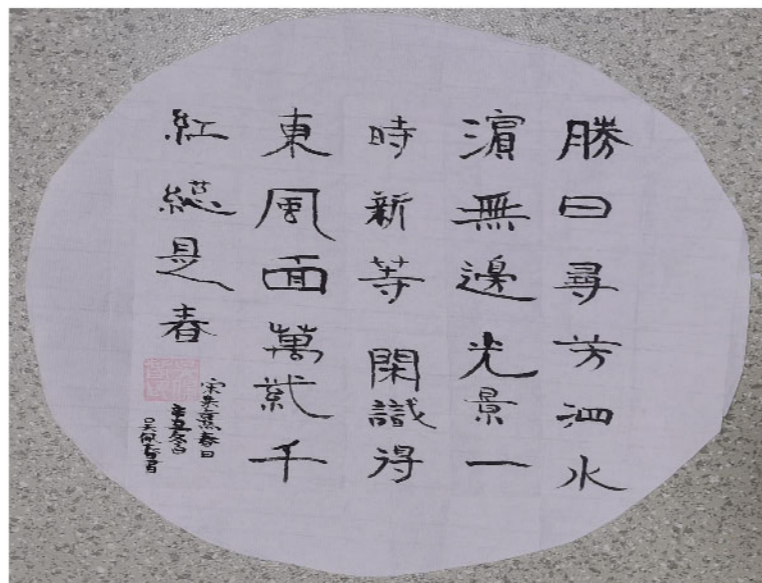 勝日尋芳泗水
濱無邊光景一
時新等閑識得
東風面萬紫千
紅總是春
宋朱熹春日
辛丑冬
吴書